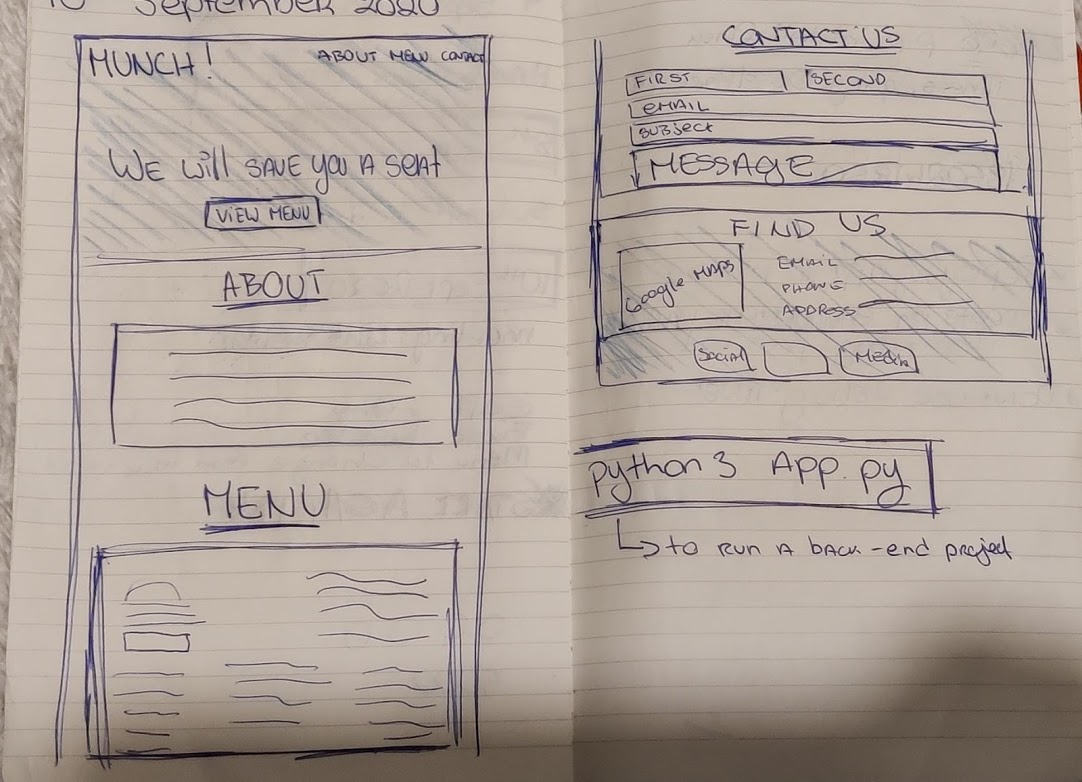 10 September 2020
MUNCH!
ABOUT MENU CONTACT
WE will SAVE you A SEAT
VIEW MENU
ABOUT
MENU
CONTACT US
FIRST
SECOND
EMAIL
SUBJECT
MESSAGE
FIND US
Google MAPS
EMAIL
PHONE
ADDRESS
Social
Media
python3 App.py
to RUN A back-end project